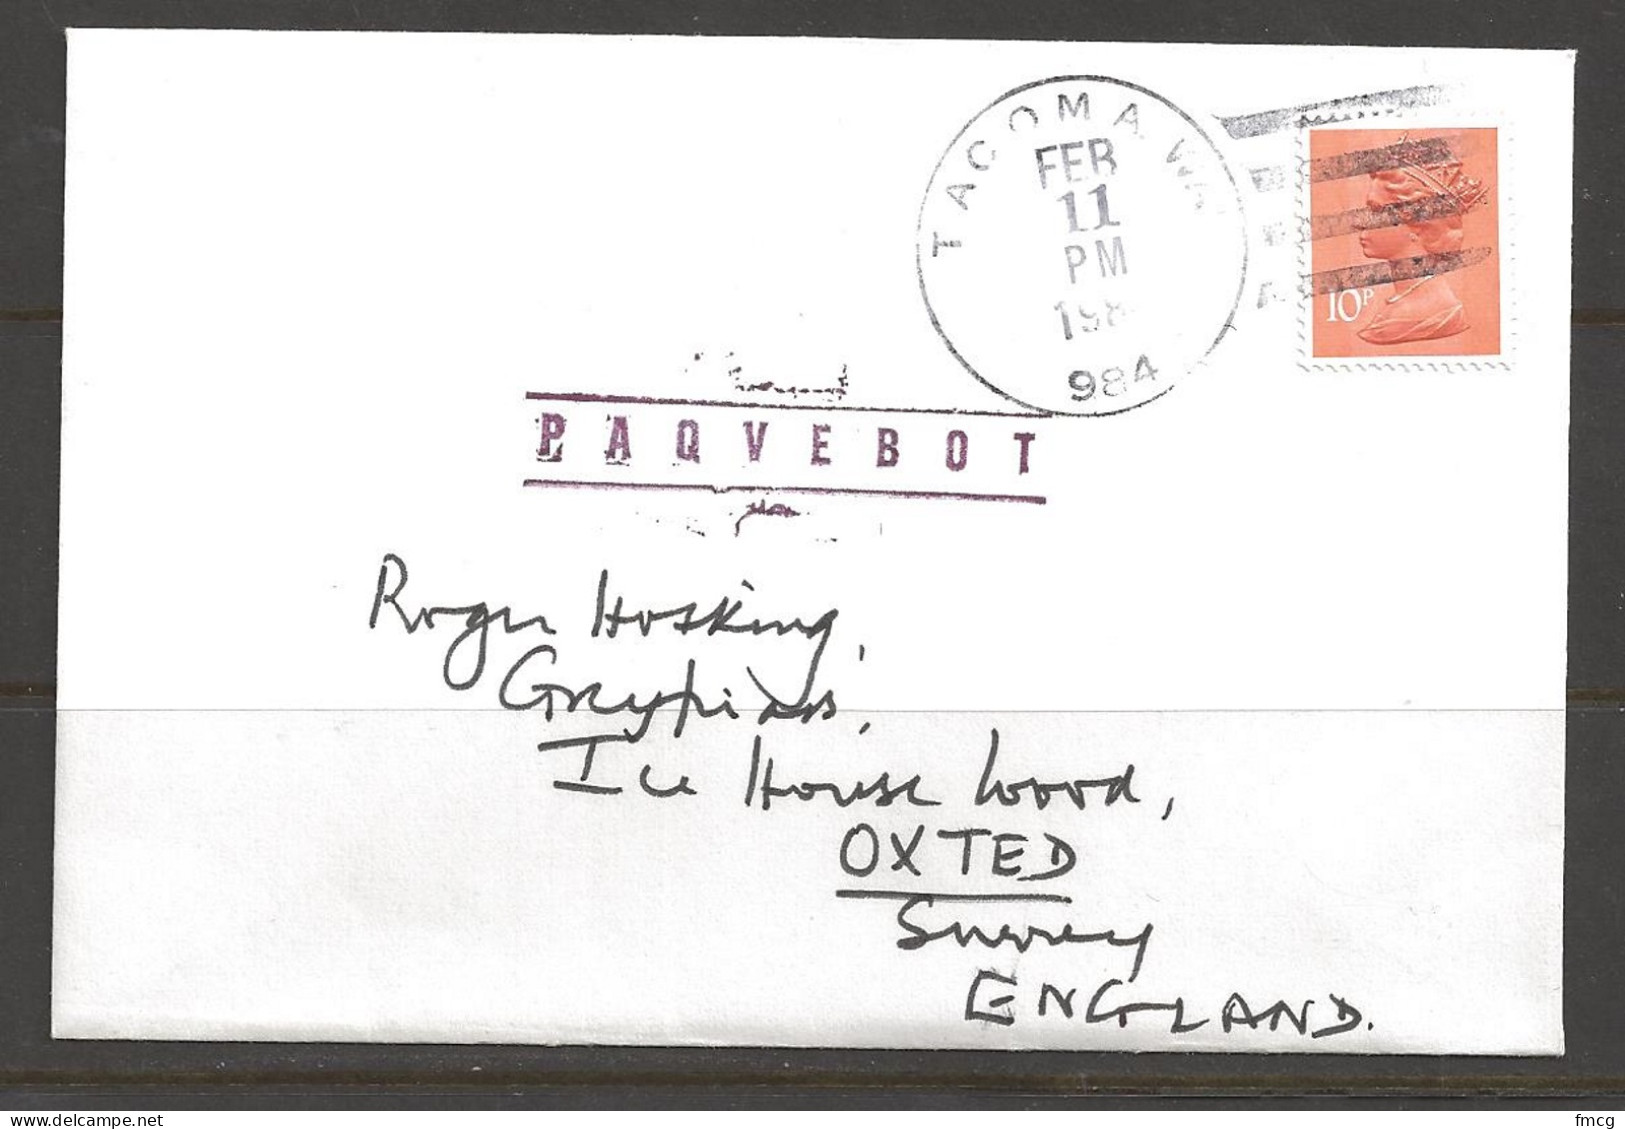 TACOMA, WA
FEB
11
PM
198
984
10P
PAQVEBOT
Roger Hosking,
Greyfriars,
Ice House Wood,
OXTED
Surrey
ENGLAND.
fmcg